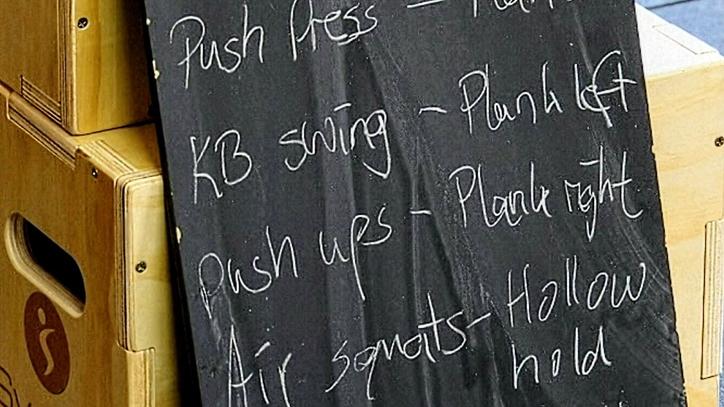 Push Press -
KB swing - Plank left
Push ups - Plank right
Air squats - Hollow
hold